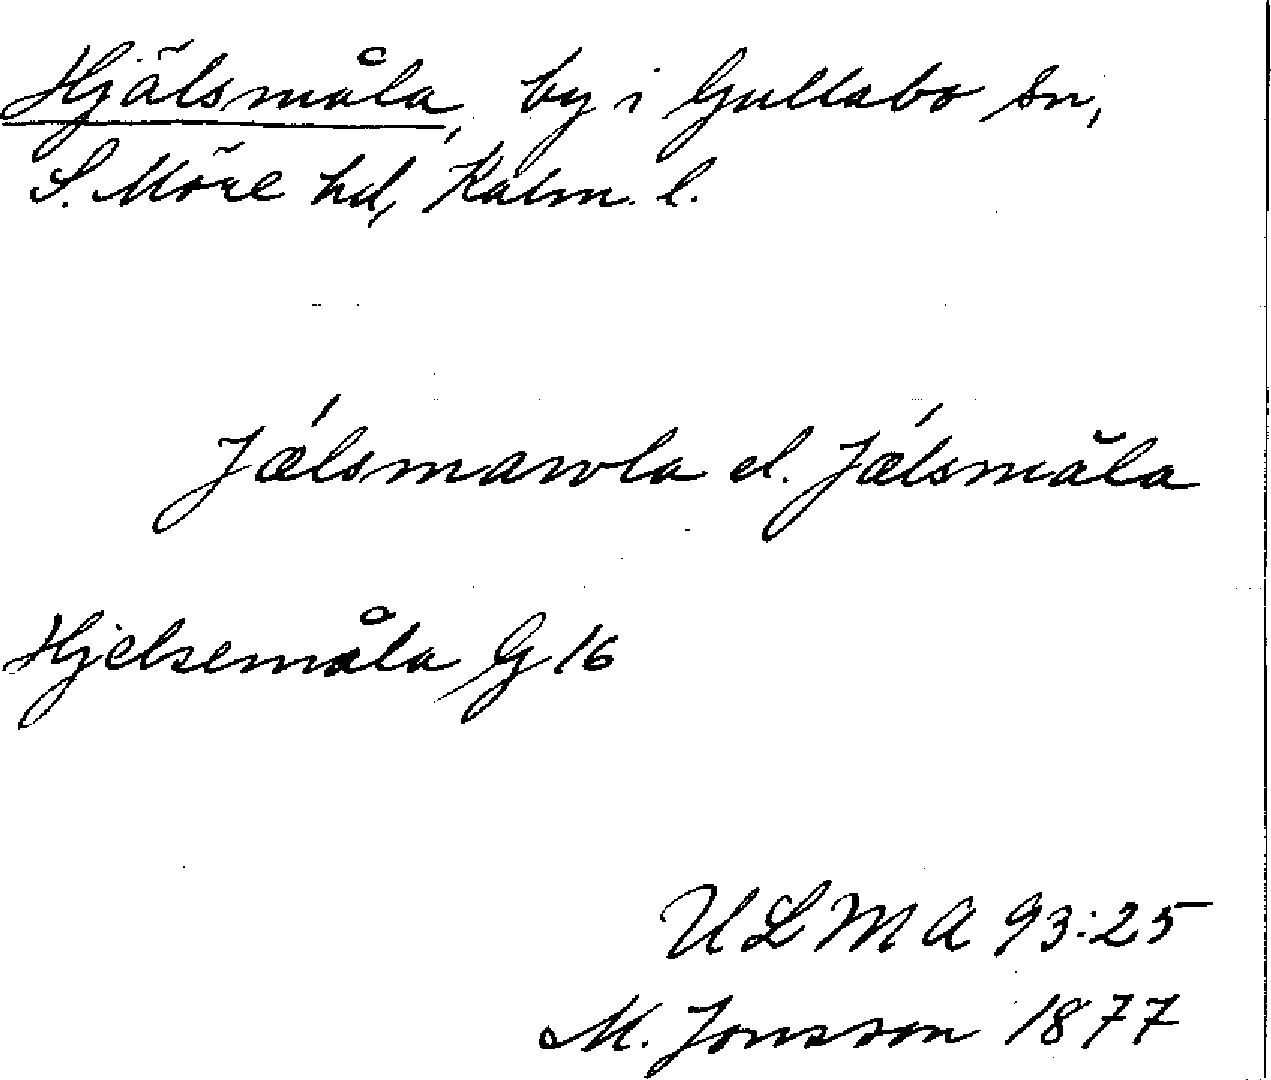 Hjälsmåla, by i Gullabo sn,
S. Möre hd, Kalm. l.
Jǽlsmawla el. Jǽlsmåla
Hjelsemåla G 16
ULMA 93:25
M. Jonsson 1877